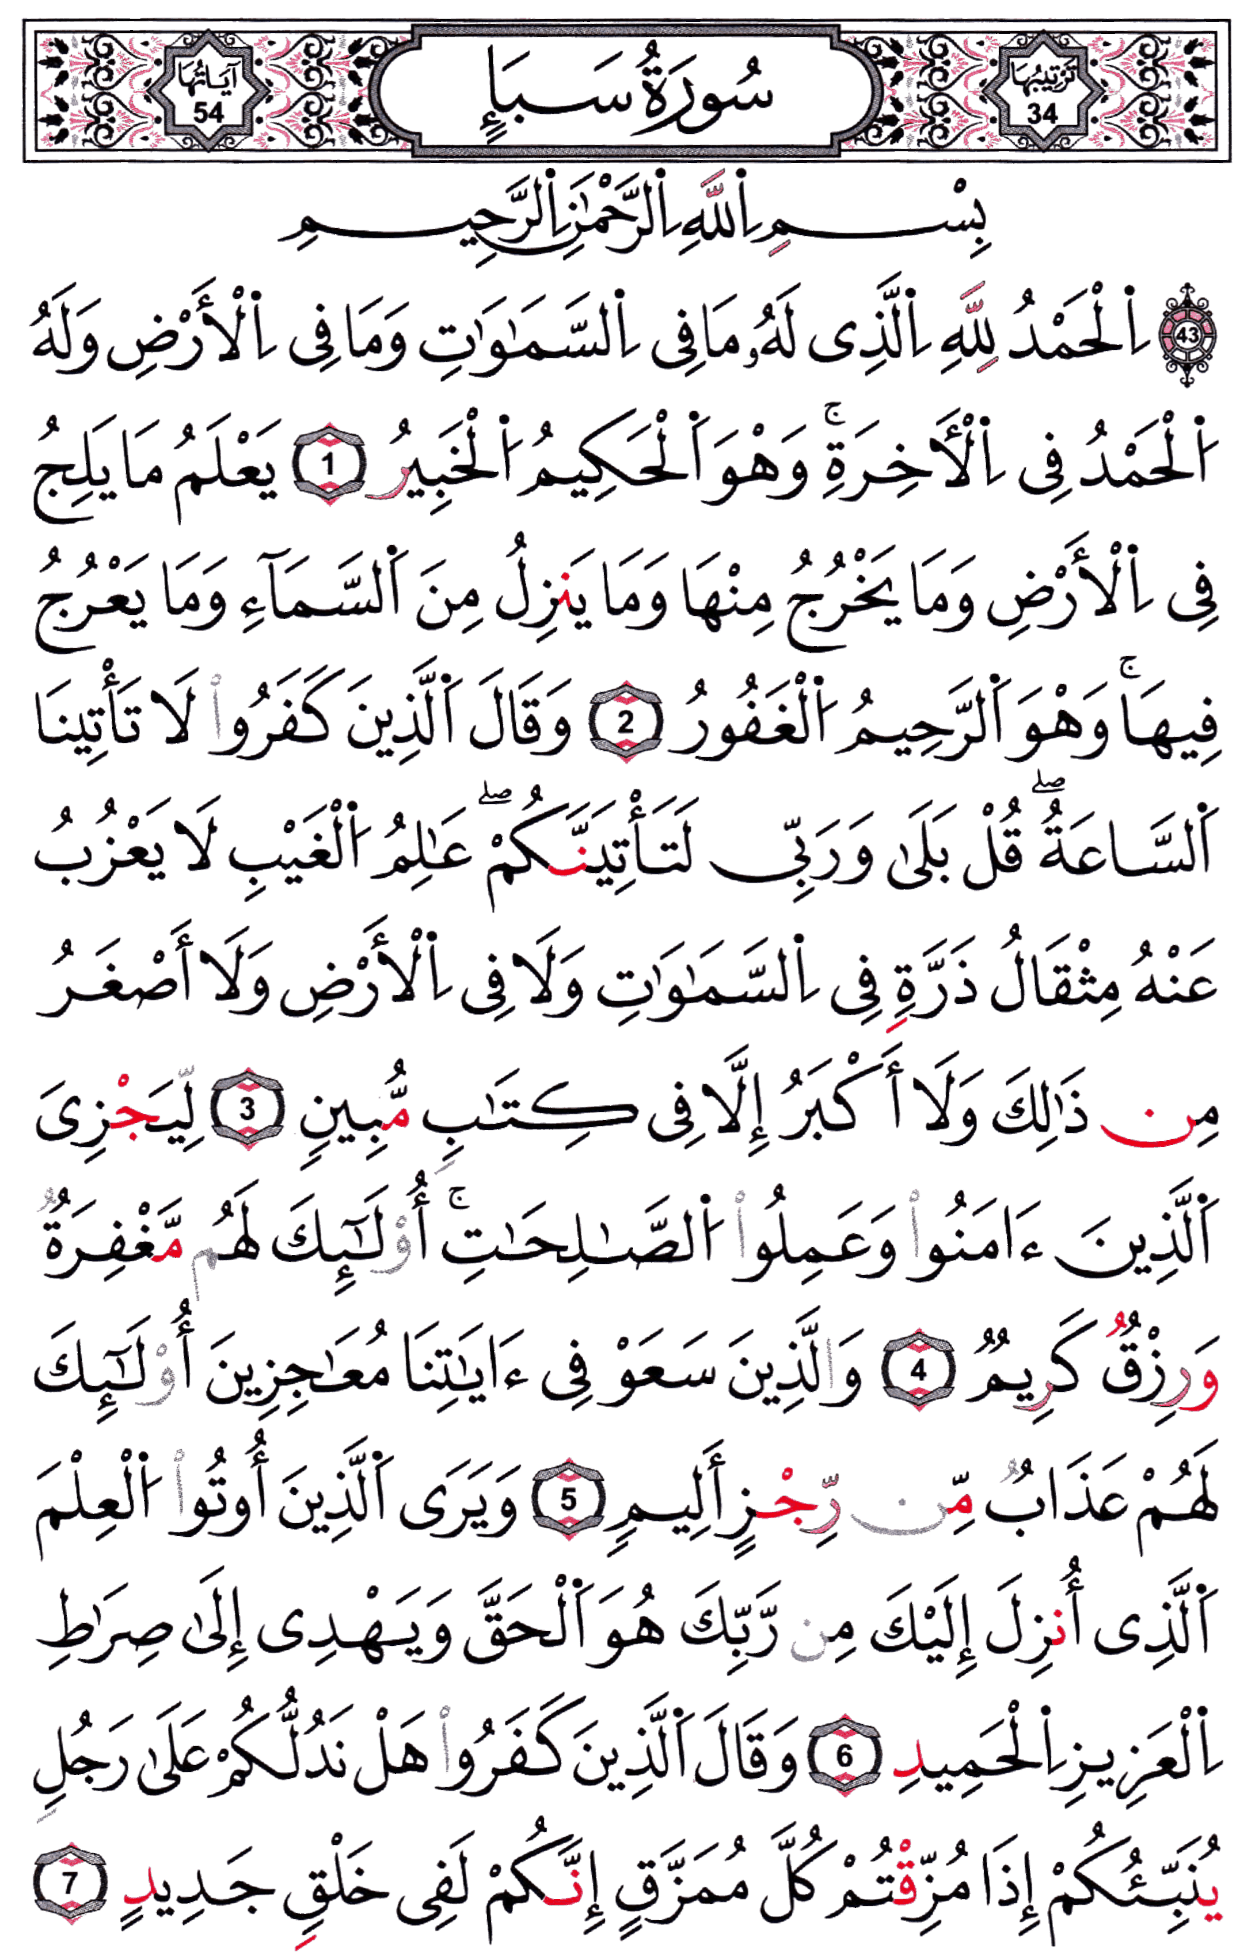 تَرْتِيبُهَا 34 سُورَةُ سَبَإٍ آيَاتُهَا 54
بِسْمِ اِ۬للَّهِ اِ۬لرَّحْمَٰنِ اِ۬لرَّحِيمِ
43 اِ۬لْحَمْدُ لِلَّهِ اِ۬لَّذِى لَهُۥ مَا فِى اِ۬لسَّمَٰوَٰتِ وَمَا فِى اِ۬لْأَرْضِ وَلَهُ
اُ۬لْحَمْدُ فِى اِ۬لْأَخِرَةِۚ وَهْوَ اَ۬لْحَكِيمُ اُ۬لْخَبِيرُ 1 يَعْلَمُ مَا يَلِجُ
فِى اِ۬لْأَرْضِ وَمَا يَخْرُجُ مِنْهَا وَمَا يَنزِلُ مِنَ اَ۬لسَّمَآءِ وَمَا يَعْرُجُ
فِيهَاۚ وَهْوَ اَ۬لرَّحِيمُ اُ۬لْغَفُورُ 2 وَقَالَ اَ۬لَّذِينَ كَفَرُواْ لَا تَأْتِينَا
اَ۬لسَّاعَةُۖ قُلْ بَلَىٰ وَرَبِّى لَتَأْتِيَنَّكُمْۖ عَٰلِمُ اُ۬لْغَيْبِ لَا يَعْزُبُ
عَنْهُ مِثْقَالُ ذَرَّةٍ فِى اِ۬لسَّمَٰوَٰتِ وَلَا فِى اِ۬لْأَرْضِ وَلَا أَصْغَرُ
مِن ذَٰلِكَ وَلَا أَكْبَرُ إِلَّا فِى كِتَٰبٍ مُّبِينٍ 3 لِّيَجْزِىَ
اَ۬لَّذِينَ ءَامَنُواْ وَعَمِلُواْ اُ۬لصَّٰلِحَٰتِۚ أُوْلَٰٓئِكَ لَهُم مَّغْفِرَةٌ
وَرِزْقٌ كَرِيمٌ 4 وَالَّذِينَ سَعَوْ فِى ءَايَٰتِنَا مُعَٰجِزِينَ أُوْلَٰٓئِكَ
لَهُمْ عَذَابٌ مِّن رِّجْزٍ أَلِيمٍ 5 وَيَرَى اَ۬لَّذِينَ أُوتُواْ اُ۬لْعِلْمَ
اَ۬لَّذِى أُنزِلَ إِلَيْكَ مِن رَّبِّكَ هُوَ اَ۬لْحَقَّ وَيَهْدِى إِلَىٰ صِرَٰطِ
اِ۬لْعَزِيزِ اِ۬لْحَمِيدِ 6 وَقَالَ اَ۬لَّذِينَ كَفَرُواْ هَلْ نَدُلُّكُمْ عَلَىٰ رَجُلٍ
يُنَبِّئُكُمْ إِذَا مُزِّقْتُمْ كُلَّ مُمَزَّقٍ إِنَّكُمْ لَفِى خَلْقٍ جَدِيدٍ 7